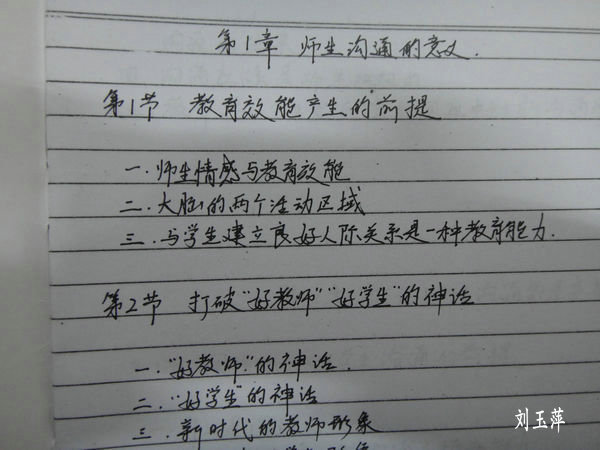 第1章 师生沟通的意义.
第1节 教育效能产生的前提
一.师生情感与教育效能
二.大脑的两个活动区域
三.与学生建立良好人际关系是一种教育能力.
第2节 打破"好教师""好学生"的神话
一."好教师"的神话.
二."好学生"的神话
三.新时代的教师形象
刘玉萍